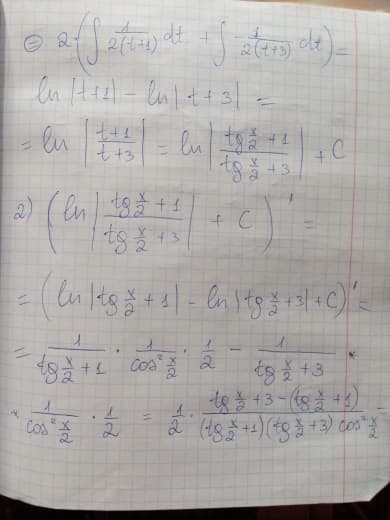 = 2·(∫ 1/(2(t+1)) dt + ∫ - 1/(2(t+3)) dt) =
ln|t+1| - ln|t+3| =
= ln |(t+1)/(t+3)| = ln |(tg x/2 + 1)/(tg x/2 + 3)| + C
2) (ln |(tg x/2 + 1)/(tg x/2 + 3)| + C)' =
= (ln |tg x/2 + 1| - ln |tg x/2 + 3| + C)' =
= 1/(tg x/2 + 1) · 1/(cos² x/2) · 1/2 - 1/(tg x/2 + 3) ·
· 1/(cos² x/2) · 1/2 = 1/2 · (tg x/2 + 3 - (tg x/2 + 1))/((tg x/2 + 1)(tg x/2 + 3) cos² x/2) =